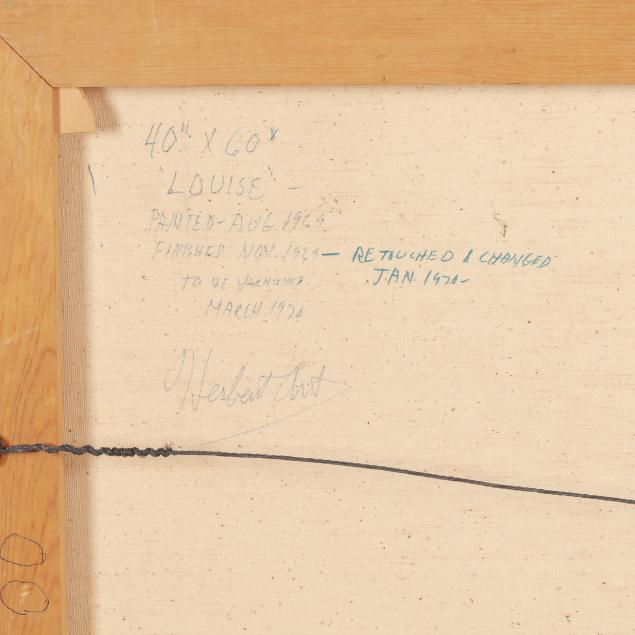 40" X 60"
"LOUISE" -
PAINTED - AUG. 1969
FINISHED NOV. 1969 — RETOUCHED & CHANGED
JAN. 1970 -
TO BE VARNISHED
MARCH 1970
Herbert